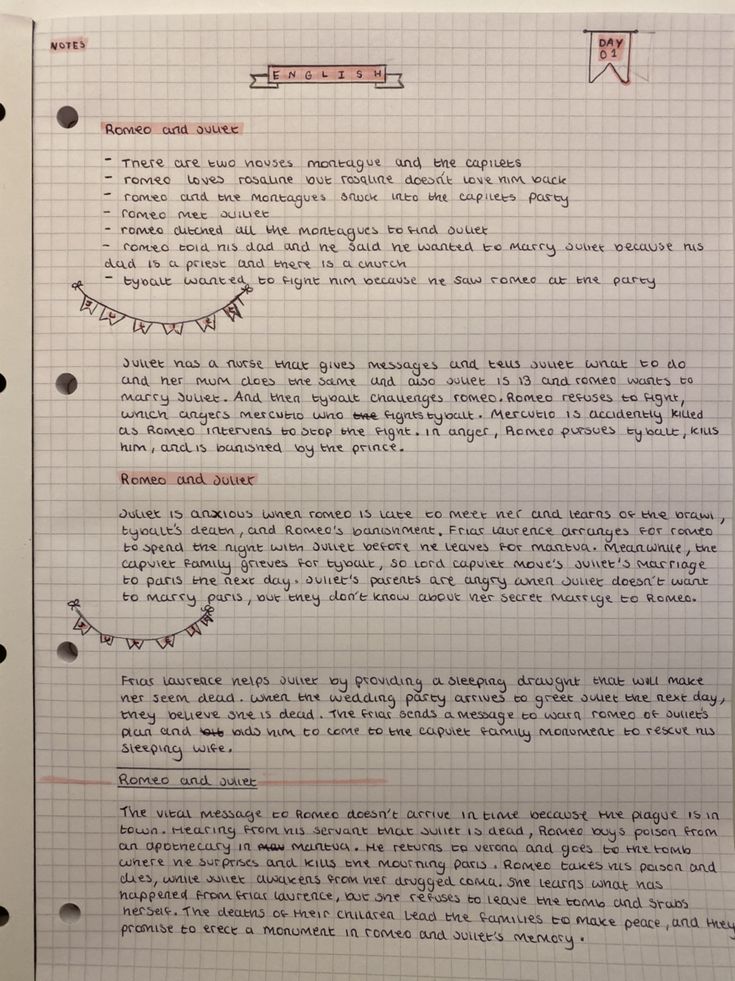 NOTES
DAY
01
ENGLISH
Romeo and Juliet
- There are two houses montague and the capilets
- romeo loves rosaline but rosaline doesn't love him back
- romeo and the montagues snuck into the capilets party
- romeo met Juliet
- romeo ditched all the montagues to find Juliet
- romeo told his dad and he said he wanted to marry Juliet because his
dad is a priest and there is a church
- tybalt wanted to fight him because he saw romeo at the party
Juliet has a nurse that gives messages and tells Juliet what to do
and her mum does the same and also Juliet is 13 and romeo wants to
marry Juliet. And then tybalt challenges romeo. Romeo refuses to fight,
which angers mercutio who the fights tybalt. Mercutio is accidently killed
as Romeo intervens to stop the fight. in anger, Romeo pursues tybalt, kills
him, and is banished by the prince.
Romeo and Juliet
Juliet is anxious when romeo is late to meet her and learns of the brawl,
tybalt's death, and Romeo's banishment. Friar laurence arranges for romeo
to spend the night with Juliet before he leaves for mantva. Meanwhile, the
capulet family grieves for tybalt, so lord capulet move's Juliet's marriage
to paris the next day. Juliet's parents are angry when Juliet doesn't want
to marry paris, but they don't know about her secret marrige to Romeo.
Friar laurence helps Juliet by providing a sleeping draught that will make
her seem dead. when the wedding party arrives to greet Juliet the next day,
they believe she is dead. The friar sends a message to warn romeo of Juliet's
plan and bids him to come to the capulet family monument to rescue his
sleeping wife.
Romeo and Juliet
The vital message to Romeo doesn't arrive in time because the plague is in
town. Hearing from his servant that Juliet is dead, Romeo buys poison from
an apothecary in mantva. He returns to verona and goes to the tomb
where he surprises and kills the mourning paris. Romeo takes his poison and
dies, while Juliet awakens from her drugged coma. She learns what has
happened from friar laurence, but she refuses to leave the tomb and stabs
herself. The deaths of their children lead the families to make peace, and they
promise to erect a monument in romeo and Juliet's memory.